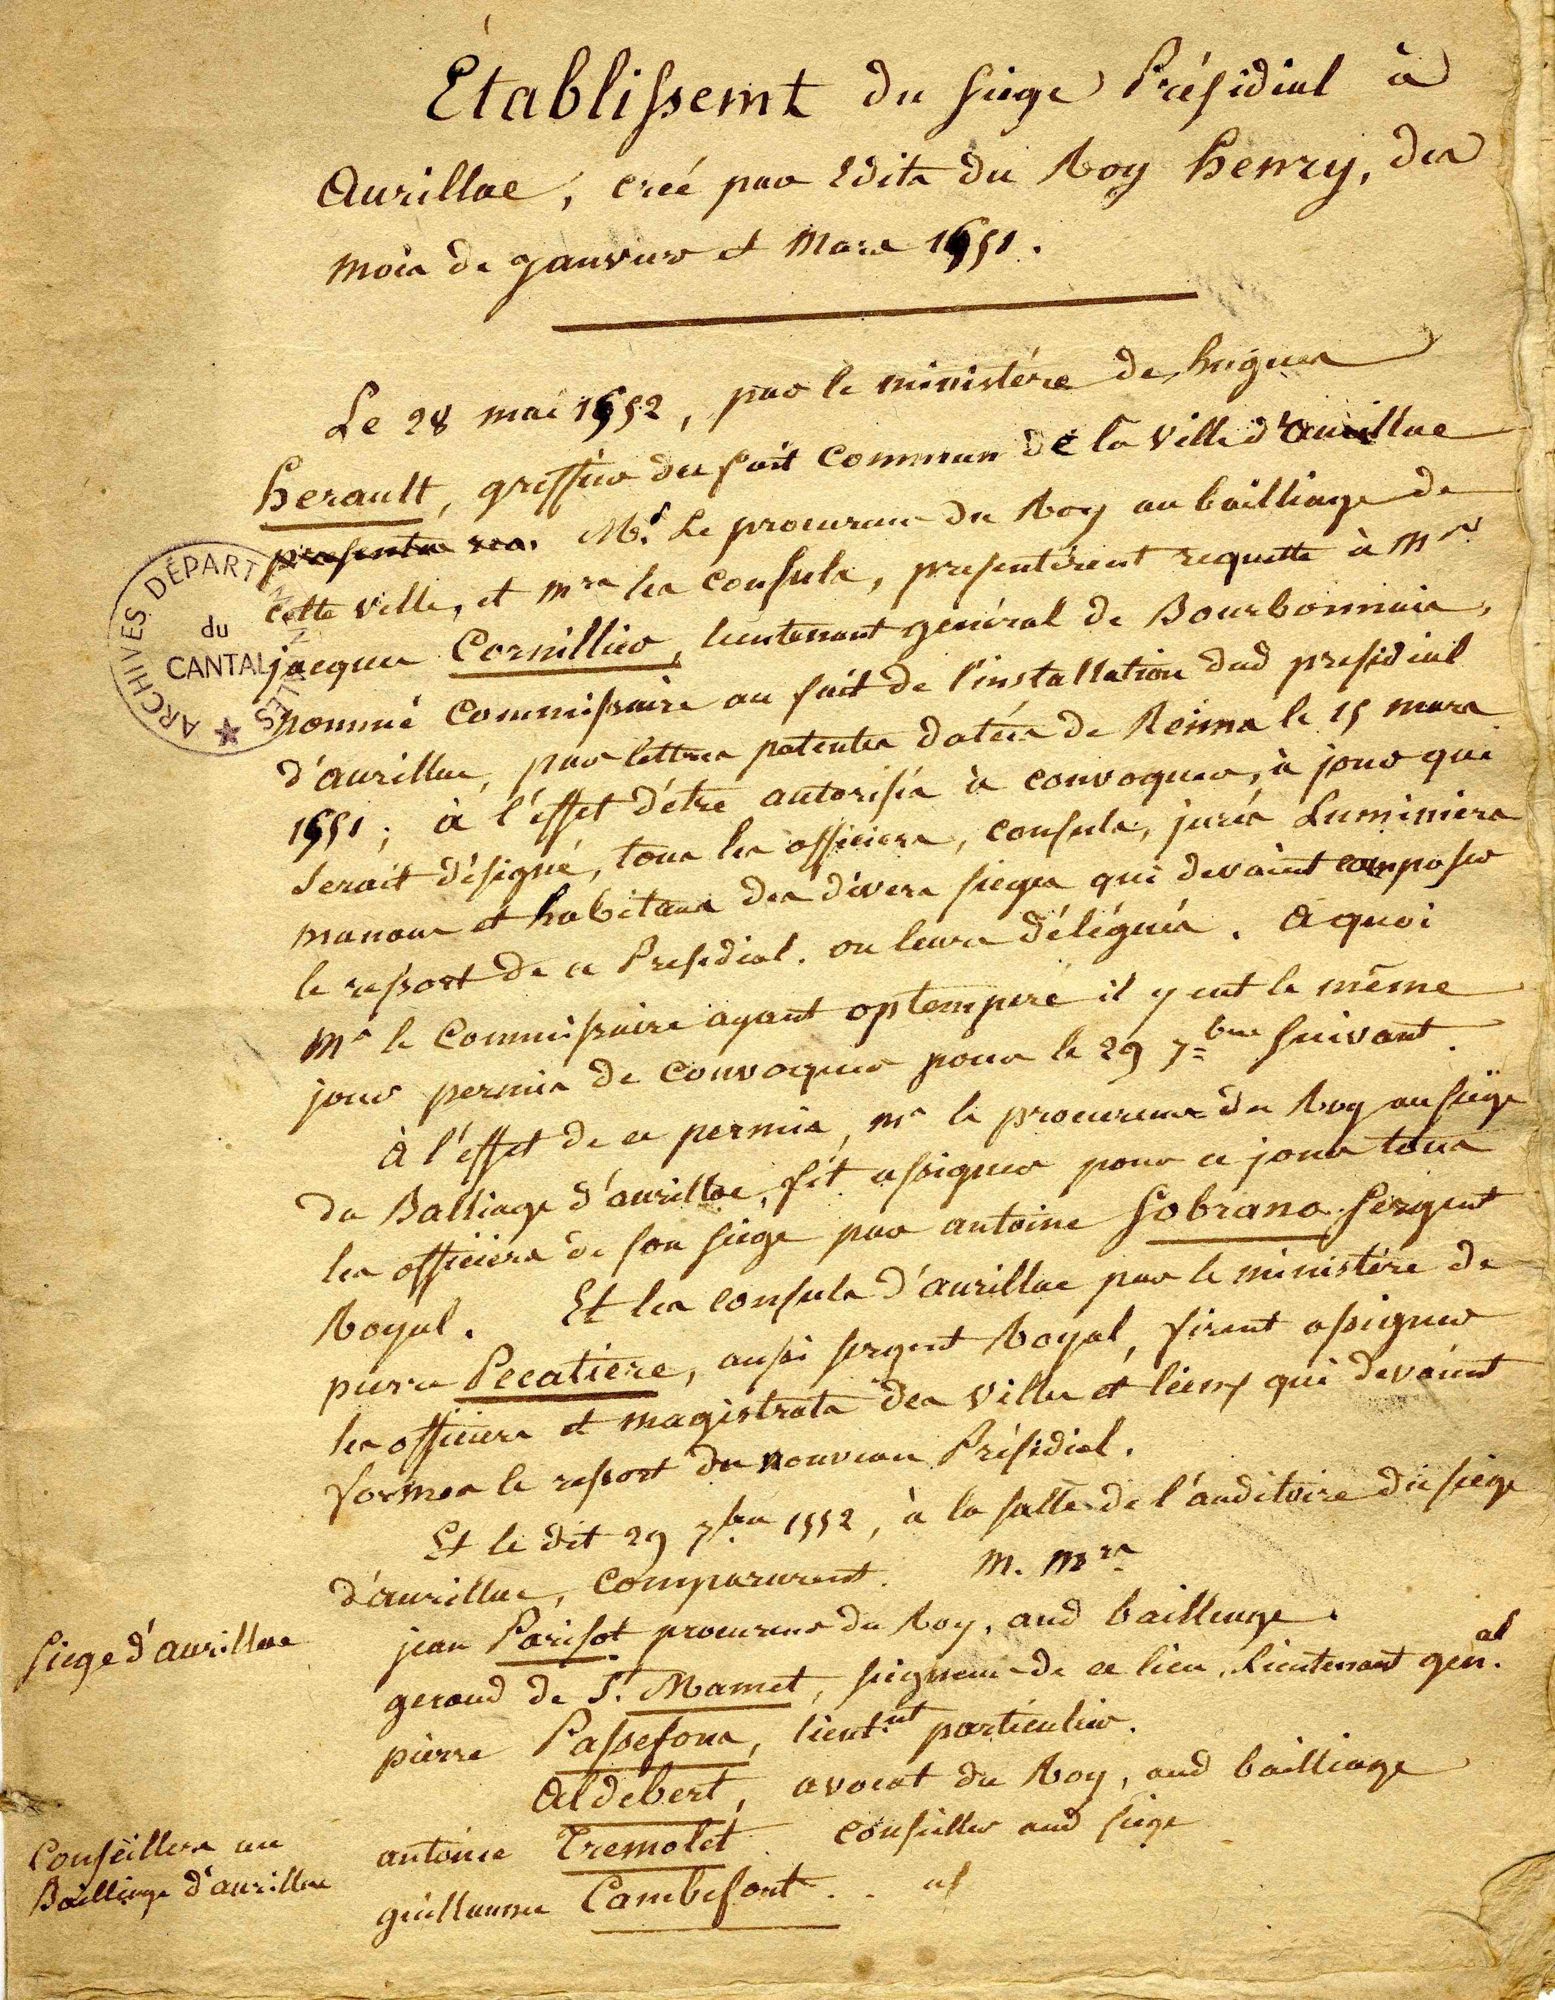 Etablissemt du siege Présidial à
Aurillac, creé par Edits du Roy henry, des
mois de janvier et Mars 1551.
Le 28 mai 1552, par le ministére de hugues
herault, greffier du fait commun de la Ville d'aurillac
M.r Le procureur du Roy au bailliage de
cette ville, et mrs les consuls, presentérent requette à Mr
jacques Cornillier, lieutenant genéral de Bourbonnais,
nommé Commissaire au fait de l'installation dud presidial
d'aurillac, par lettres patentes datées de Reims le 15 mars
1551; à l'éffet d'étre autorisés à convoquer, à jour qui
serait désigné, tous les officiers, consuls, jurés Luminiers
manans et habitans des divers sieges qui devaint composer
le ressort de ce Presidial. ou leurs délégués. A quoi
Mr le Commissaire ayant optemperé il y eut le même
jour permis de convoquer pour le 29 7=bre suivant.
A l'éffet de ce permis, Mr le procureur du Roy au siége
du Balliage d'aurillac, fit assigner pour ce jour tous
les officiers de son siége par antoine Sobrano sergent
Royal. Et les consuls d'aurillac par le ministére de
pierre Pecatiere, aussi sergent Royal, firent assigner
les officiers et magistrats des Villes et lieux qui devoint
former le ressort du nouveau Présidial.
Et le dit 29 7bre 1552, à la salle de l'auditoire du siége
d'aurillac, comparurent. M. Mrs
Siege d'aurillac
jean Parisot procureur du Roy, aud bailliage.
geraud de St. Mamet, seigneur de ce lieu, Lieutenant gen.al
pierre Passefons, lieut.nt particulier.
Aldebert, avocat du Roy, aud bailliage
Conseillers au
Bailliage d'aurillac
antoine Tremolet conseiller aud siége
guillaume Cambefort . . id
ARCHIVES DÉPARTEMENTALES
du
CANTAL